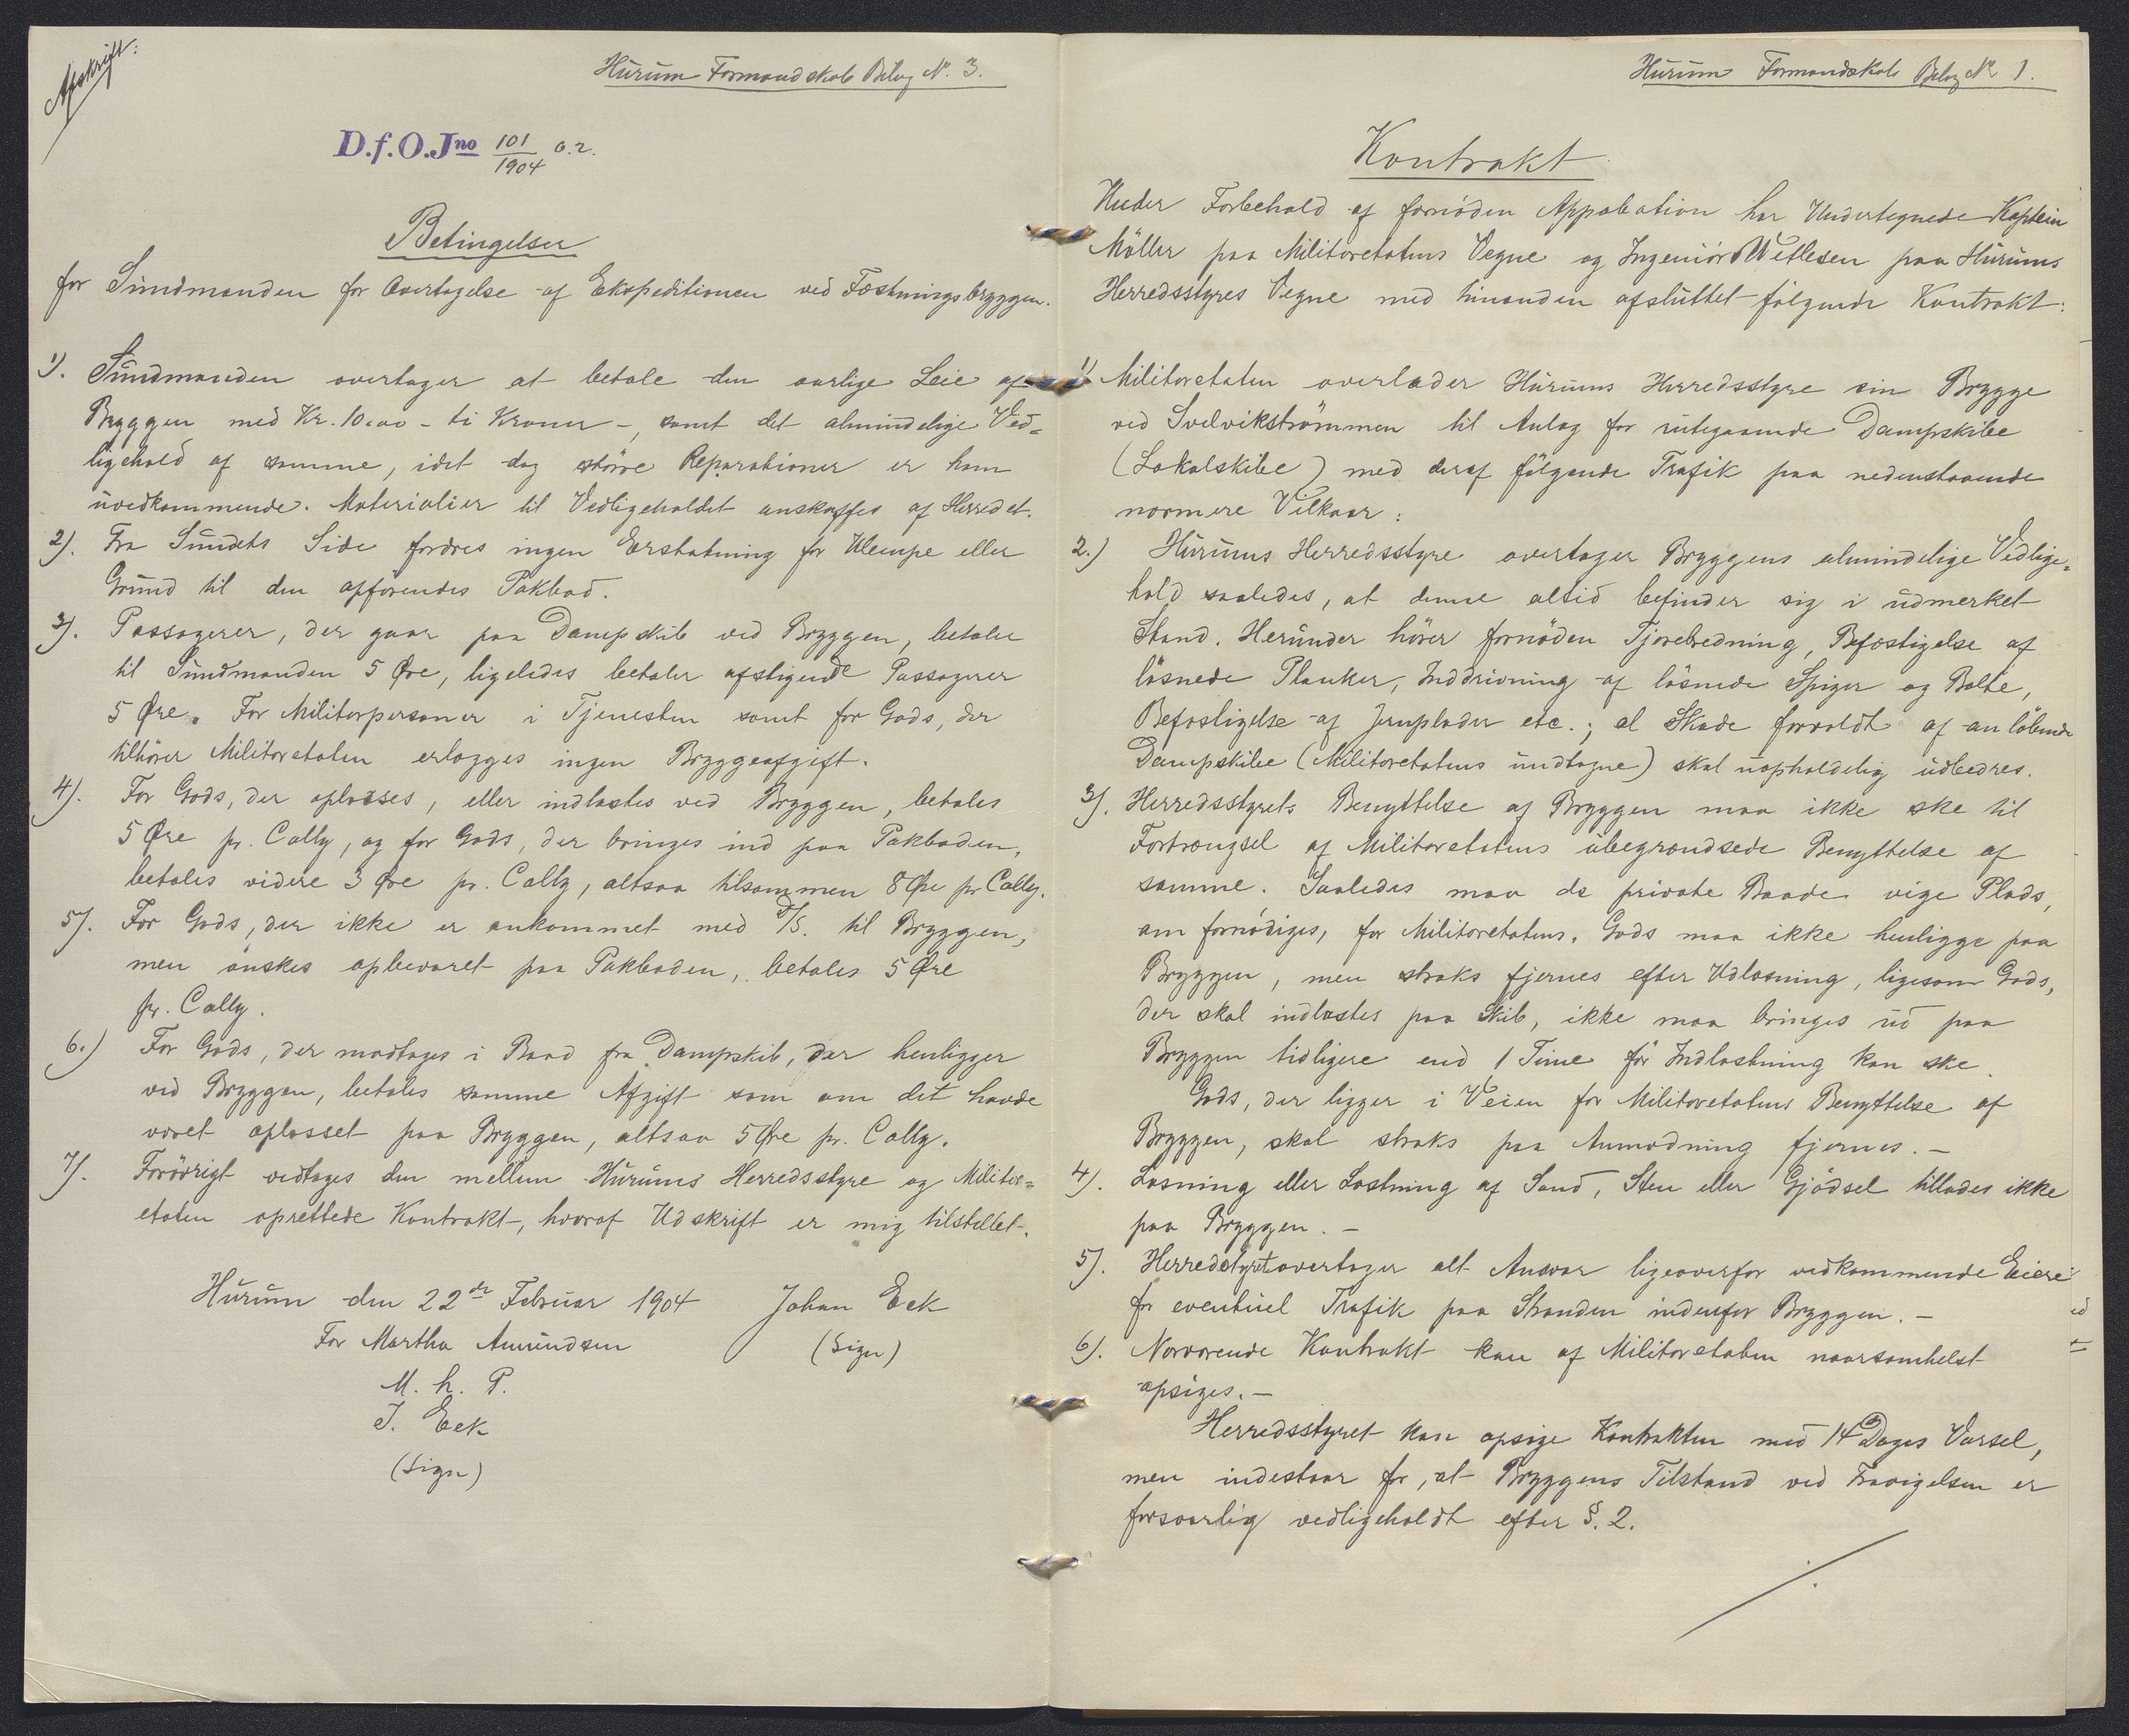 Afskrift:
Hurum Formandskab Bilag No. 3.
D.f.O.Jno 101/1904 o.r.
Betingelser
for Sundmanden for Overtagelse af Ekspeditionen ved Fæstningsbryggen.
1). Sundmanden overtager at betale den aarlige Leie af
Bryggen med Kr. 10.00 - ti Kroner -, samt det almindelige Ved=
ligehold af samme, idet dog større Reparationer er ham
uvedkommende. Materialier til Vedligeholdet anskaffes af Herredet.
2). Fra Sundets Side fordres ingen Erstatning for Ulempe eller
Grund til den opførendes Pakbod.
3). Passagerer, der gaar paa Dampskib ved Bryggen, betaler
til Sundmanden 5 Øre, ligeledes betaler afstigende Passagerer
5 Øre. For Militærpersoner i Tjenesten samt for Gods, der
tilhører Militæretaten erlægges ingen Bryggeafgift.
4). For Gods, der oplosses, eller indlastes ved Bryggen, betales
5 Øre pr. Colly, og for Gods, der bringes ind paa Pakboden,
betales videre 3 Øre pr. Colly, altsaa tilsammen 8 Øre pr Colly.
5). For Gods, der ikke er ankommet med D/S. til Bryggen,
men ønskes opbevaret paa Pakboden, betales 5 Øre
pr. Colly.
6.) For Gods, der modtages i Baad fra Dampskib, der henligger
ved Bryggen, betales samme Afgift som om det havde
været oplosset paa Bryggen, altsaa 5 Øre pr. Colly.
7). Forøvrigt vedtages den mellem Hurums Herredsstyre og Militær=
etaten oprettede Kontrakt, hvoraf Udskrift er mig tilstillet.
Hurum den 22de Februar 1904 Johan Eek
For Martha Amundsen (sign)
M. h. P.
J. Eek
(sign)
Hurum Formandskab Bilag No 1.
Kontrakt
Under Forbehold af fornøden Approbation har Undertegnede Kaptein
Möller paa Militæretatens Vegne og Ingeniør Wetlesen paa Hurums
Herredsstyres Vegne med hinanden afsluttet følgende Kontrakt:
1) Militæretaten overlader Hurums Herredsstyre sin Brygge
ved Svelvikstrømmen til Anløg for rutegaaende Dampskibe
(Lokalskibe) med deraf følgende Trafik paa nedenstaaende
nærmere Vilkaar:
2.) Hurums Herredsstyre overtager Bryggens almindelige Vedlige=
hold saaledes, at denne altid befinder sig i udmerket
Stand. Herunder hører fornøden Tjærebredning, Befæstigelse af
løsnede Planker, Inddrivning af løsnede Spiger og Bolte,
Befæstigelse af Jernplader etc.; al Skade forvoldt af anløbende
Dampskibe (Militæretatens undtagne) skal uopholdelig udbedres.
3). Herredsstyrets Benyttelse af Bryggen maa ikke ske til
Fortrængsel af Militæretatens ubegrændsede Benyttelse af
samme. Saaledes maa de private Baade vige Plads,
om fornødiges, for Militæretatens. Gods maa ikke henligge paa
Bryggen, men straks fjernes efter Udlosning, ligesom Gods,
der skal indlastes paa Skib, ikke maa bringes ud paa
Bryggen tidligere end 1 Time før Indlastning kan ske.
Gods, der ligger i Veien for Militæretatens Benyttelse af
Bryggen, skal straks paa Anmodning fjernes. -
4). Losning eller Lastning af Sand, Sten eller Gjødsel tillades ikke
paa Bryggen. -
5). Herredstyret overtager alt Ansvar ligeoverfor vedkommende Eiere
for eventuel Trafik paa Stranden indenfor Bryggen. -
6). Nærværende Kontrakt kan af Militæretaten naarsomhelst
opsiges. -
Herredsstyret kan opsige Kontrakten med 14 Dages Varsel,
men indestaar for, at Bryggens Tilstand ved Fravigelsen er
forsvarlig vedligeholdt efter §. 2.